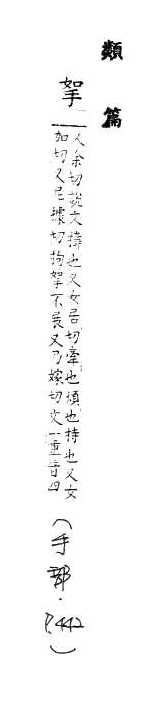 類篇
挐
人余切說文也又女居切牽也煩也持也又女
加切又尼據切拘挐不展又乃嫁切文一重音四
(手部・P.442)